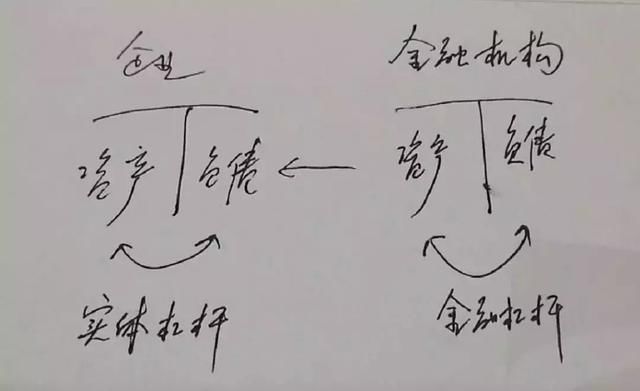 企业
资产 负债
实体杠杆
金融机构
资产 负债
金融杠杆